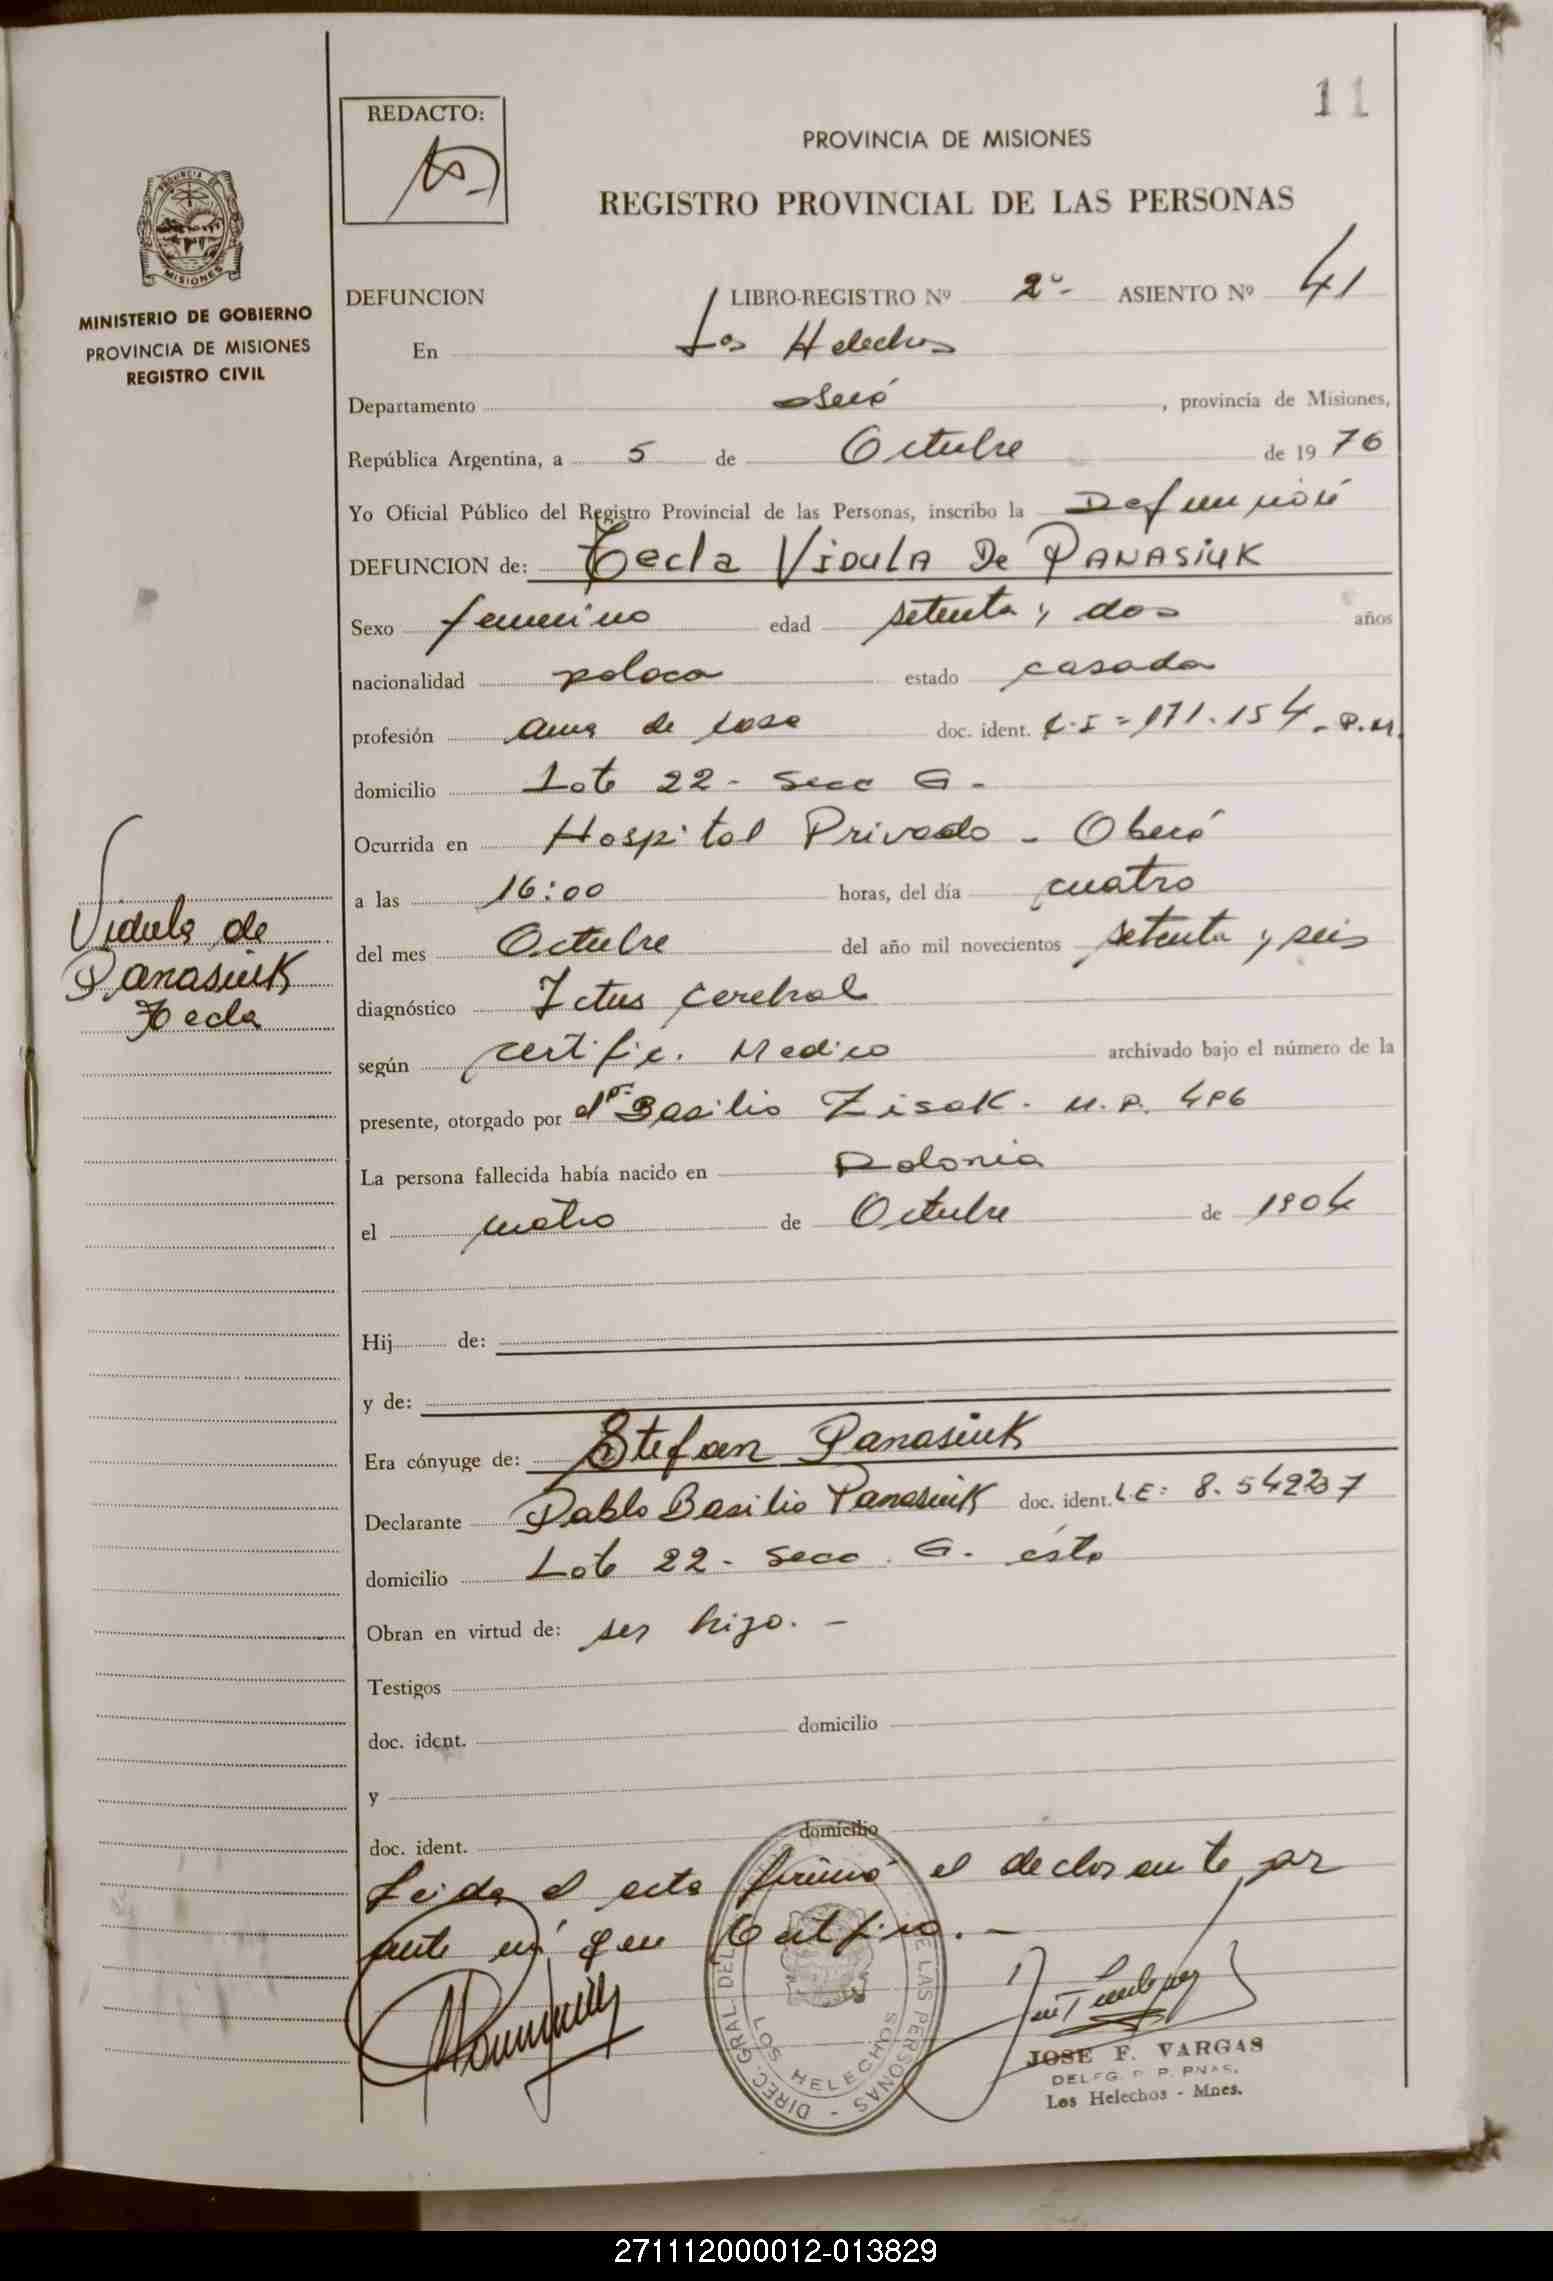 11
REDACTO:
PROVINCIA DE MISIONES
REGISTRO PROVINCIAL DE LAS PERSONAS
PROVINCIA DE
MISIONES
MINISTERIO DE GOBIERNO
PROVINCIA DE MISIONES
REGISTRO CIVIL
DEFUNCION LIBRO-REGISTRO Nº 2º- ASIENTO Nº 41
En Los Helechos
Departamento Oberá, provincia de Misiones,
República Argentina, a 5 de Octubre de 1976
Yo Oficial Público del Registro Provincial de las Personas, inscribo la Defunción
DEFUNCION de: Tecla VIDULA De PANASIUK
Sexo femenino edad setenta y dos años
nacionalidad polaca estado casada
profesión ama de casa doc. ident. C.I=171.154-P.M.
domicilio Lote 22- Secc G-
Ocurrida en Hospital Privado - Oberá
a las 16:00 horas, del día cuatro
del mes Octubre del año mil novecientos setenta y seis
diagnóstico Ictus Cerebral
según certific. Medico archivado bajo el número de la
presente, otorgado por dr Basilio Zisak. M.P. 496
La persona fallecida había nacido en Polonia
el cuatro de Octubre de 1904
Hij de:
y de:
Era cónyuge de: Stefan Panasiuk
Declarante Pablo Basilio Panasiuk doc. ident. L.E: 8.549237
domicilio Lote 22- Secc. G. ésta
Obran en virtud de: ser hijo. -
Testigos
doc. ident. domicilio
y
doc. ident. domicilio
Leida el acta firmó el declarante por
ante mí que Certifico. -
Vidula de
Panasiuk
Tecla
DIREC. GRAL. DEL DE LAS PERSONAS -
LOS HELECHOS
JOSE F. VARGAS
DELEG. R. P. PNAS.
Los Helechos - Mnes.
271112000012-013829